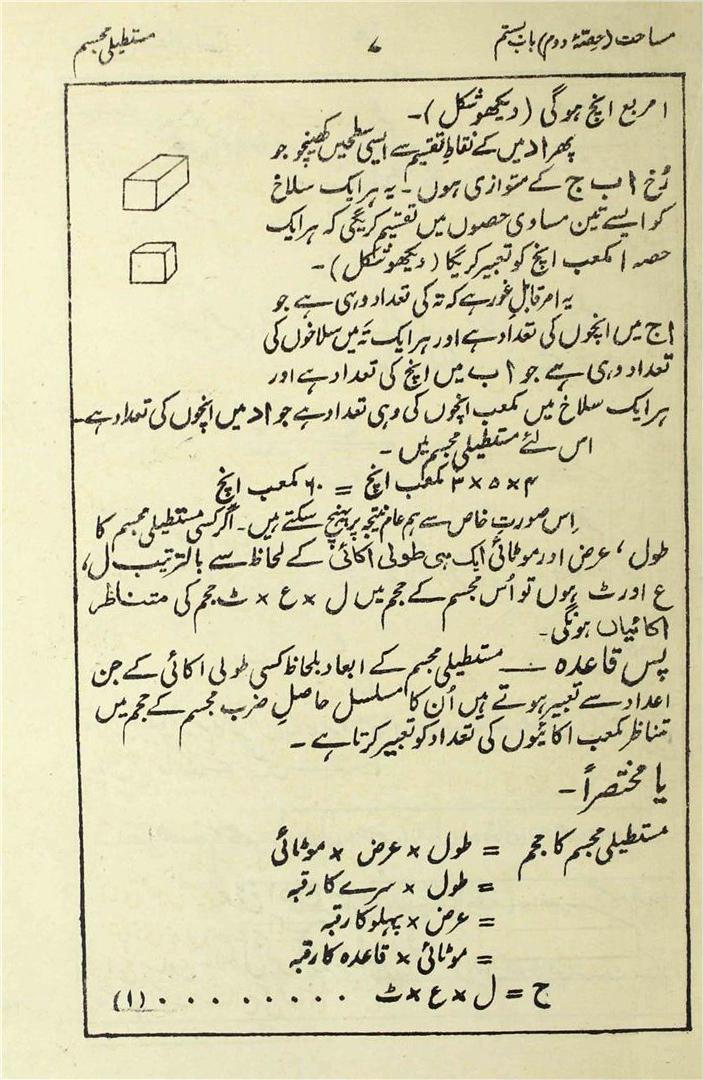 مساحت (حصۂ دوم) باب بستم
۷
مستطیلی مجسم
۱ مربع انچ ہوگی (دیکھو شکل)۔
پھر ا د میں کے نقاط تقسیم سے ایسی سطحیں کھینچو جو
رُخ ا ب ج کے متوازی ہوں۔ یہ ہر ایک سلاخ
کو ایسے تین مساوی حصوں میں تقسیم کریںگی کہ ہر ایک
حصہ ۱ مکعب انچ کو تعبیر کریگا (دیکھو شکل)۔
یہ امر قابل غور ہے کہ تہ کی تعداد وہی ہے جو
ا ج میں انچوں کی تعداد ہے اور ہر ایک تہ میں سلاخوں کی
تعداد وہی ہے جو ا ب میں انچ کی تعداد ہے اور
ہر ایک سلاخ میں مکعب انچوں کی وہی تعداد ہے جو ا د میں انچوں کی تعداد ہے۔
اس لئے مستطیلی مجسم میں۔
۴ × ۵ × ۳ مکعب انچ = ۶۰ مکعب انچ
اِس صورت خاص سے ہم عام نتیجہ پر پہنچ سکتے ہیں۔ اگر کسی مستطیلی مجسم کا
طول، عرض اور موٹائی ایک ہی طولی اکائی کے لحاظ سے بالترتیب ل،
ع اور ٹ ہوں تو اُس مجسم کے حجم میں ل × ع × ٹ حجم کی متناظر
اکائیاں ہونگی۔
پس قاعدہ — مستطیلی مجسم کے ابعاد بلحاظ کسی طولی اکائی کے جن
اعداد سے تعبیر ہوتے ہیں اُن کا مسلسل حاصلِ ضرب مجسم کے حجم میں
متناظر مکعب اکائیوں کی تعداد کو تعبیر کرتا ہے۔
یا مختصراً۔
مستطیلی مجسم کا حجم = طول × عرض × موٹائی
= طول × سرے کا رقبہ
= عرض × پہلو کا رقبہ
= موٹائی × قاعدہ کا رقبہ
ح = ل × ع × ٹ . . . . . . . . . (۱)